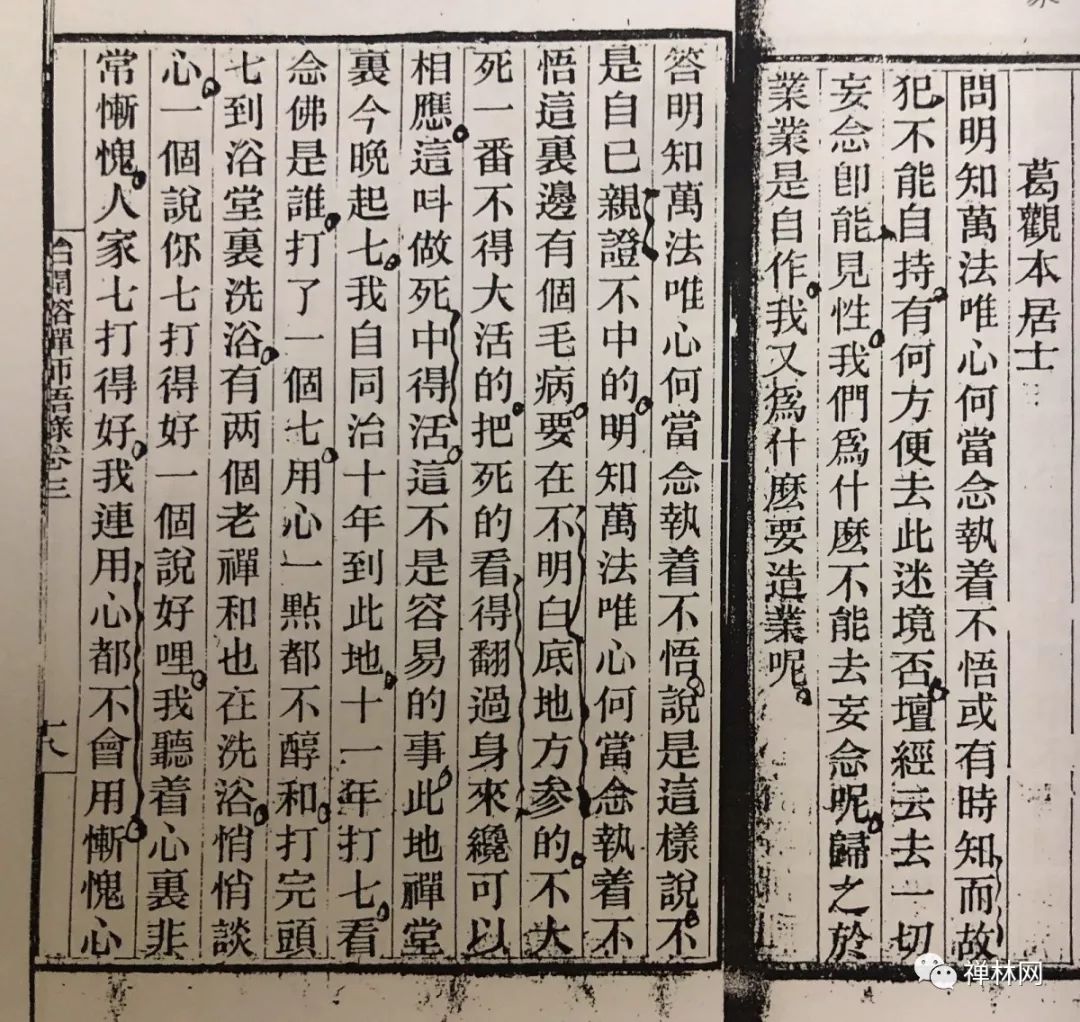 葛觀本居士
問明知萬法唯心何當念執着不悟或有時知而故
犯不能自持有何方便去此迷境否壇經云去一切
妄念卽能見性我們爲什麽不能去妄念呢歸之於
業業是自作我又爲什麽要造業呢
答明知萬法唯心何當念執着不悟說是這樣說不
是自己親證不中的明知萬法唯心何當念執着不
悟這裏邊有個毛病要在不明白底地方参的不大
死一番不得大活的把死的看得翻過身來纔可以
相應這呌做死中得活這不是容易的事此地禪堂
裏今晚起七我自同治十年到此地十一年打七看
念佛是誰打了一個七用心一點都不醇和打完頭
七到浴堂裏洗浴有两個老禪和也在洗浴悄悄談
心一個說你七打得好一個說好哩我聽着心裏非
常慚愧人家七打得好我連用心都不會用慚愧心
冶開鎔禪師語錄卷三
十八
禅林网